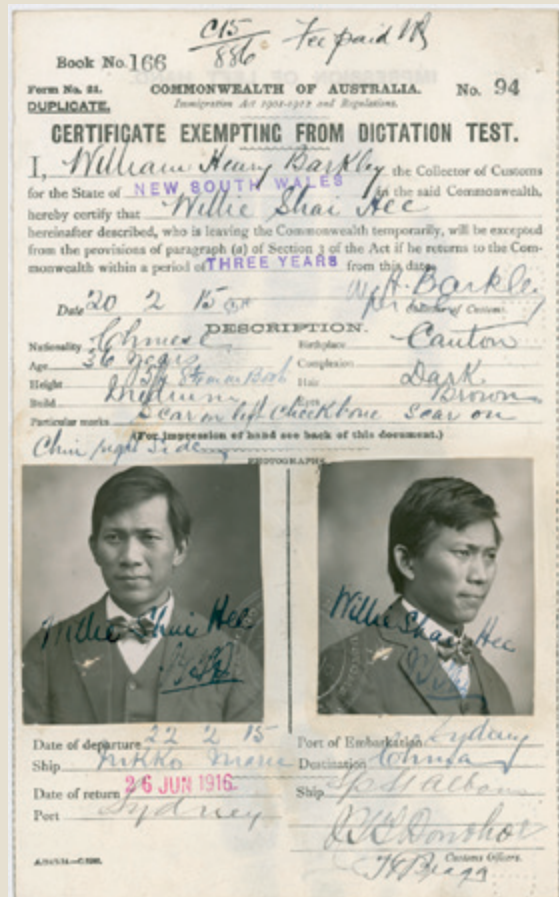 C15/886 Fee paid
Book No. 166
Form No. 21. COMMONWEALTH OF AUSTRALIA. No. 94
DUPLICATE. Immigration Act 1901-1912 and Regulations.
CERTIFICATE EXEMPTING FROM DICTATION TEST.
I, William Henry Barkley the Collector of Customs
for the State of NEW SOUTH WALES in the said Commonwealth,
hereby certify that Willie Shai Hee
hereinafter described, who is leaving the Commonwealth temporarily, will be excepted
from the provisions of paragraph (a) of Section 3 of the Act if he returns to the Com-
monwealth within a period of THREE YEARS from this date.
W H Barkley
Date 20 2 15 Collector of Customs.
DESCRIPTION.
Nationality Chinese Birthplace Canton
Age 36 years Complexion
Height Hair Dark
Build Medium Eyes Brown
Particular marks Scar on left cheekbone Scar on
(For impression of hand see back of this document.)
Chin right side
PHOTOGRAPHS.
Willie Shai Hee
Willie Shai Hee
Date of departure 22 2 15 Port of Embarkation Sydney
Ship Nikko Maru Destination China
Date of return 26 JUN 1916. Ship St Albans
Port Sydney
Customs Officers.